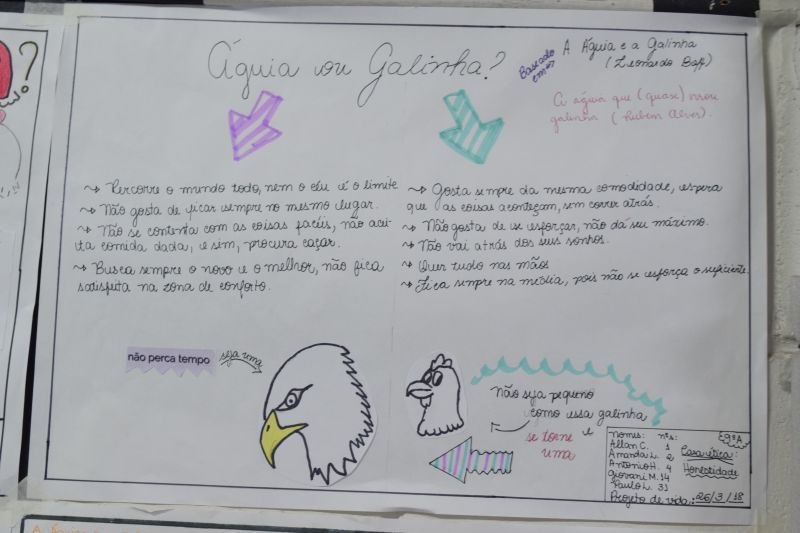 Águia ou Galinha?
Baseado
em:
A Águia e a Galinha
(Leonardo Boff)
A águia que (quase) virou
galinha (Rubem Alves).
Percorre o mundo todo, nem o céu é o limite
Não gosta de ficar sempre no mesmo lugar.
Não se contenta com as coisas fáceis, não acei-
ta comida dada, e sim, procura caçar.
Busca sempre o novo e o melhor, não fica
satisfeita na zona de conforto.
Gosta sempre da mesma comodidade, espera
que as coisas aconteçam, sem correr atrás.
Não gosta de se esforçar, não dá seu máximo.
Não vai atrás dos seus sonhos.
Quer tudo nas mãos
Fica sempre na média, pois não se esforça o suficiente.
não perca tempo
seja uma
não seja pequeno
como essa galinha
e
se torne
uma
Nomes: nºs: 9ºA
Allan C. 1
Amanda L. 2
Antonio H. 4
Giovani M. 14
Paulo L. 31
Casa ética:
Honestidade
Projeto de vida: 26/3/18
?